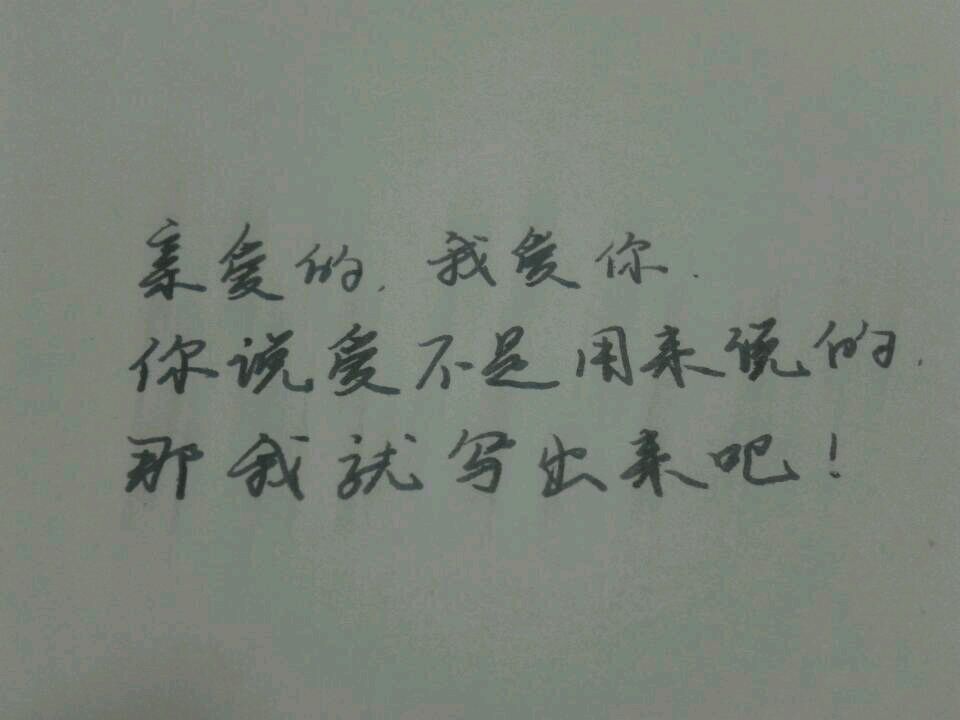 亲爱的.我爱你.
你说爱不是用来说的.
那我就写出来吧!